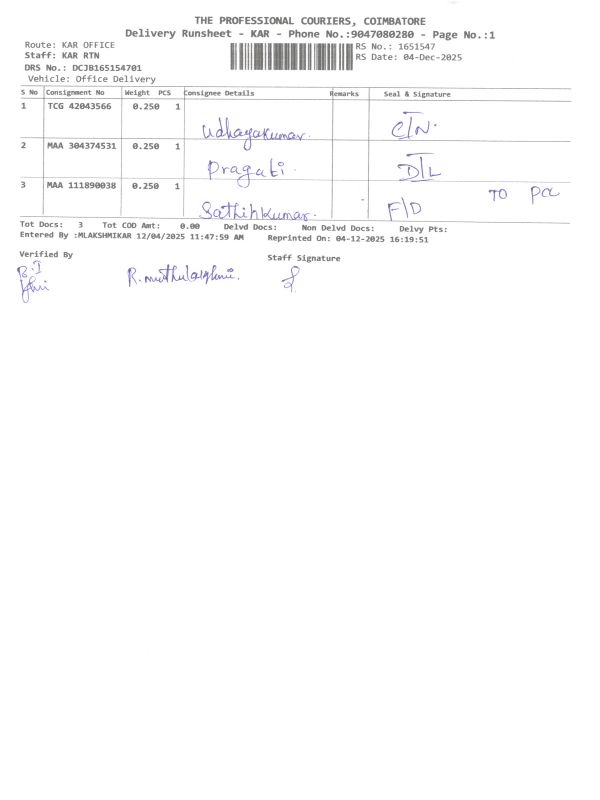 THE PROFESSIONAL COURIERS, COIMBATORE
Delivery Runsheet - KAR - Phone No.:9047080280 - Page No.:1
Route: KAR OFFICE RS No.: 1651547
Staff: KAR RTN RS Date: 04-Dec-2025
DRS No.: DCJB165154701
Vehicle: Office Delivery
S No Consignment No Weight PCS Consignee Details Remarks Seal & Signature
1 TCG 42043566 0.250 1
Udhayakumar. C/N.
2 MAA 304374531 0.250 1
Pragati. D/L
3 MAA 111890038 0.250 1 TO PCC
Sathihkumar. F/D
Tot Docs: 3 Tot COD Amt: 0.00 Delvd Docs: Non Delvd Docs: Delvy Pts:
Entered By :MLAKSHMIKAR 12/04/2025 11:47:59 AM Reprinted On: 04-12-2025 16:19:51
Verified By Staff Signature